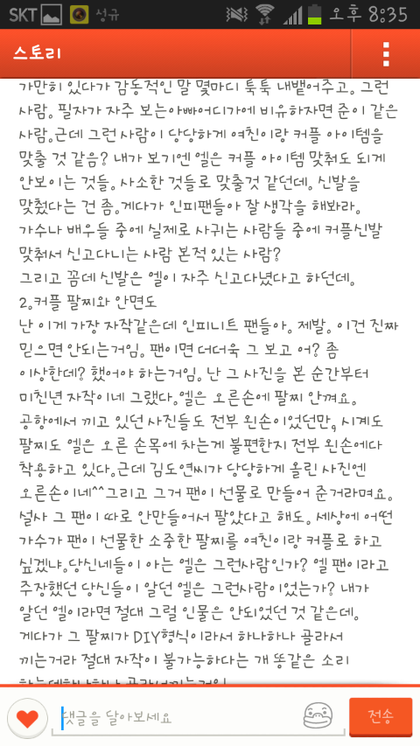 SKT 성규 오후 8:35
스토리
가만히 있다가 감동적인 말 몇마디 툭툭 내뱉어주고. 그런
사람. 필자가 자주 보는아빠어디가에 비유하자면 준이 같은
사람.근데 그런 사람이 당당하게 여친이랑 커플 아이템을
맞출 것 같음? 내가 보기엔 엘은 커플 아이템 맞춰도 되게
안보이는 것들. 사소한 것들로 맞출것 같던데. 신발을
맞췄다는 건 좀.게다가 인피팬들아 잘 생각을 해봐라.
가수나 배우들 중에 실제로 사귀는 사람들 중에 커플신발
맞춰서 신고다니는 사람 본적 있는 사람?
그리고 꼼데 신발은 엘이 자주 신고다녔다고 하던데.
2.커플 팔찌와 안면도
난 이게 가장 자작같은데 인피니트 팬들아. 제발. 이건 진짜
믿으면 안되는거임. 팬이면 더더욱 그 보고 어? 좀
이상한데? 했어야 하는거임. 난 그 사진을 본 순간부터
미친년 자작이네 그랬다.엘은 오른손에 팔찌 안껴요.
공항에서 끼고 있던 사진들도 전부 왼손이었던만, 시계도
팔찌도 엘은 오른 손목에 차는게 불편한지 전부 왼손에다
착용하고 있다.근데 김도연씨가 당당하게 올린 사진엔
오른손이네^^그리고 그거 팬이 선물로 만들어 준거라며요.
설사 그 팬이 따로 안만들어서 팔았다고 해도. 세상에 어떤
가수가 팬이 선물한 소중한 팔찌를 여친이랑 커플로 하고
싶겠냐.당신네들이 아는 엘은 그런사람인가? 엘 팬이라고
주장했던 당신들이 알던 엘은 그런사람이었는가? 내가
알던 엘이라면 절대 그럴 인물은 안되었던 것 같은데.
게다가 그 팔찌가 DIY형식이라서 하나하나 골라서
끼는거라 절대 자작이 불가능하다는 개 똥같은 소리
댓글을 달아보세요
전송